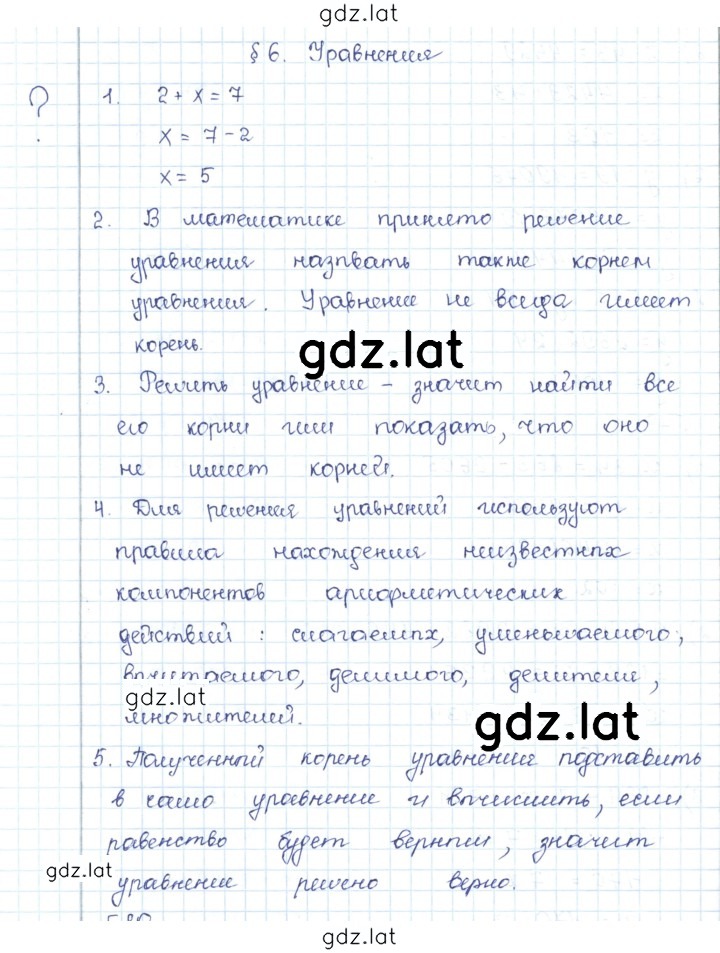 gdz.lat
§ 6. Уравнения
?
1. 2 + x = 7
x = 7 - 2
x = 5
2. В математике принято решение
уравнения называть также корнем
уравнения. Уравнение не всегда имеет
корень.
gdz.lat
3. Решить уравнение - значит найти все
его корни или показать, что оно
не имеет корней.
4. Для решения уравнений используют
правила нахождения неизвестных
компонентов арифметических
действий: слагаемых, уменьшаемого,
вычитаемого, делимого, делителя,
gdz.lat
множителей.
gdz.lat
5. Полученный корень уравнения подставить
в само уравнение и вычислить, если
равенство будет верным, значит
gdz.lat
уравнение решено верно.
gdz.lat